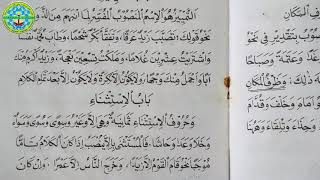 التمييز هو الاسم المنصوب المفسر لما انبهم من الذوات
نحو قولك تصبب زيد عرقا وتفقأ بكر شحما وطاب محمد نفسا
واشتريت عشرين غلاما وملكت تسعين نعجة وزيد أكرم منك
أبا وأجمل منك وجها ولا يكون إلا نكرة ولا يكون إلا بعد تمام الكلام
باب الاستثناء
وحروف الاستثناء ثمانية وهي إلا وغير وسوى وسوى وسواء
وخلا وعدا وحاشا فالمستثنى بإلا ينصب إذا كان الكلام تاما
موجبا نحو قام القوم إلا زيدا وخرج الناس إلا عمرا وإن كان
ف المكان
وب بتقدير في نحو
وغدا وعتمة وصباحا
وظرف المكان
أمام وخلف وقدام
وحذاء وتلقاء وهنا